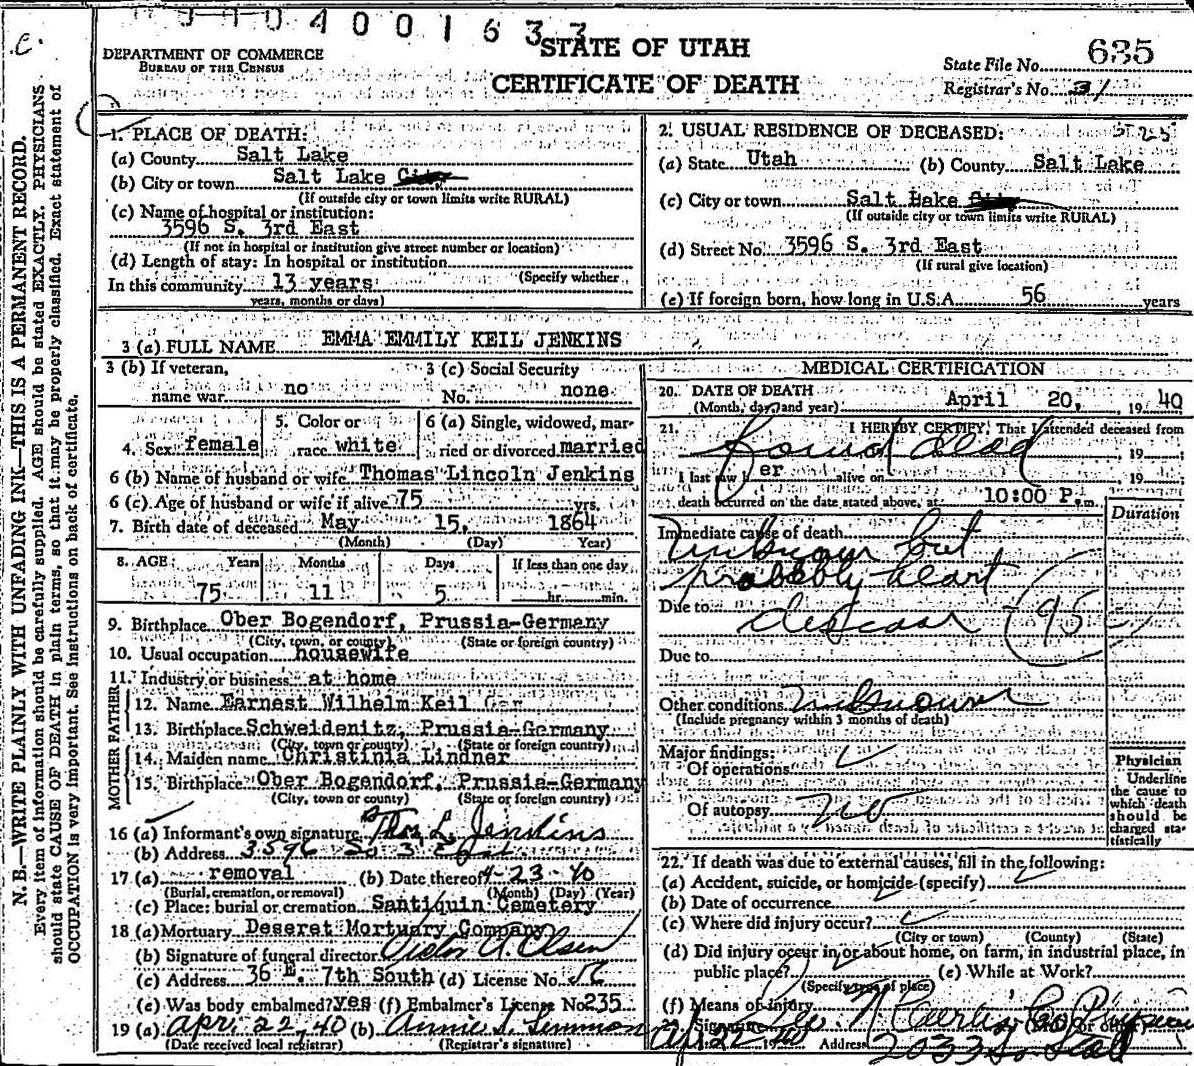 0400163
STATE OF UTAH
CERTIFICATE OF DEATH
DEPARTMENT OF COMMERCE
BUREAU OF THE CENSUS
State File No. 635
Registrar's No. 31
N. B.—WRITE PLAINLY WITH UNFADING INK—THIS IS A PERMANENT RECORD.
Every item of information should be carefully supplied. AGE should be stated EXACTLY. PHYSICIANS
should state CAUSE OF DEATH in plain terms, so that it may be properly classified. Exact statement of
OCCUPATION is very important. See instructions on back of certificate.
1. PLACE OF DEATH:
(a) County Salt Lake
(b) City or town Salt Lake City
(If outside city or town limits write RURAL)
(c) Name of hospital or institution:
3596 S. 3rd East
(If not in hospital or institution give street number or location)
(d) Length of stay: In hospital or institution
(Specify whether
In this community 13 years
years, months or days)
2. USUAL RESIDENCE OF DECEASED:
(a) State Utah (b) County Salt Lake
(c) City or town Salt Lake City
(If outside city or town limits write RURAL)
(d) Street No. 3596 S. 3rd East
(If rural give location)
(e) If foreign born, how long in U.S.A. 56 years
3 (a) FULL NAME EMMA EMMILY KEIL JENKINS
3 (b) If veteran, name war no
3 (c) Social Security No. none
4. Sex female
5. Color or race white
6 (a) Single, widowed, married or divorced married
6 (b) Name of husband or wife Thomas Lincoln Jenkins
6 (c) Age of husband or wife if alive 75 yrs.
7. Birth date of deceased May 15, 1864
(Month) (Day) Year)
8. AGE: Years Months Days If less than one day
75 11 5 hr. min.
9. Birthplace Ober Bogendorf, Prussia-Germany
(City, town, or county) (State or foreign country)
10. Usual occupation housewife
11. Industry or business at home
FATHER
12. Name Earnest Wilhelm Keil
13. Birthplace Schweidenitz, Prussia-Germany
(City, town or county) (State or foreign country)
MOTHER
14. Maiden name Christinia Lindner
15. Birthplace Ober Bogendorf, Prussia-Germany
(City, town or county) (State or foreign country)
16 (a) Informant's own signature Thos L. Jenkins
(b) Address 3596 So 3 East
17 (a) removal (b) Date thereof 4-23-40
(Burial, cremation, or removal) (Month) (Day) (Year)
(c) Place: burial or cremation Santiquin Cemetery
18 (a) Mortuary Deseret Mortuary Company
(b) Signature of funeral director Victor A. Olsen
(c) Address 36 E. 7th South (d) License No.
(e) Was body embalmed? yes (f) Embalmer's License No. 235
19 (a) Apr. 22, 40 (b) Annie S. Lemmon
(Date received local registrar) (Registrar's signature)
MEDICAL CERTIFICATION
20. DATE OF DEATH
(Month, day, and year) April 20, 19 40
21. I HEREBY CERTIFY, That I attended deceased from
found dead , 19
I last saw h er alive on , 19 ;
death occurred on the date stated above, at 10:00 P. m.
Duration
Immediate cause of death
Unknown but
probably heart
Due to disease (95
Due to
Other conditions Unknown
(Include pregnancy within 3 months of death)
Major findings:
Of operations
Of autopsy no
Physician
Underline
the cause to
which death
should be
charged sta-
tistically
22. If death was due to external causes, fill in the following:
(a) Accident, suicide, or homicide (specify)
(b) Date of occurrence
(c) Where did injury occur?
(City or town) (County) (State)
(d) Did injury occur in or about home, on farm, in industrial place, in
public place? (e) While at Work?
(Specify type of place)
(f) Means of injury
23. Signature N Curtis Co Physician
Apr 22 1940 Address 2033 So State